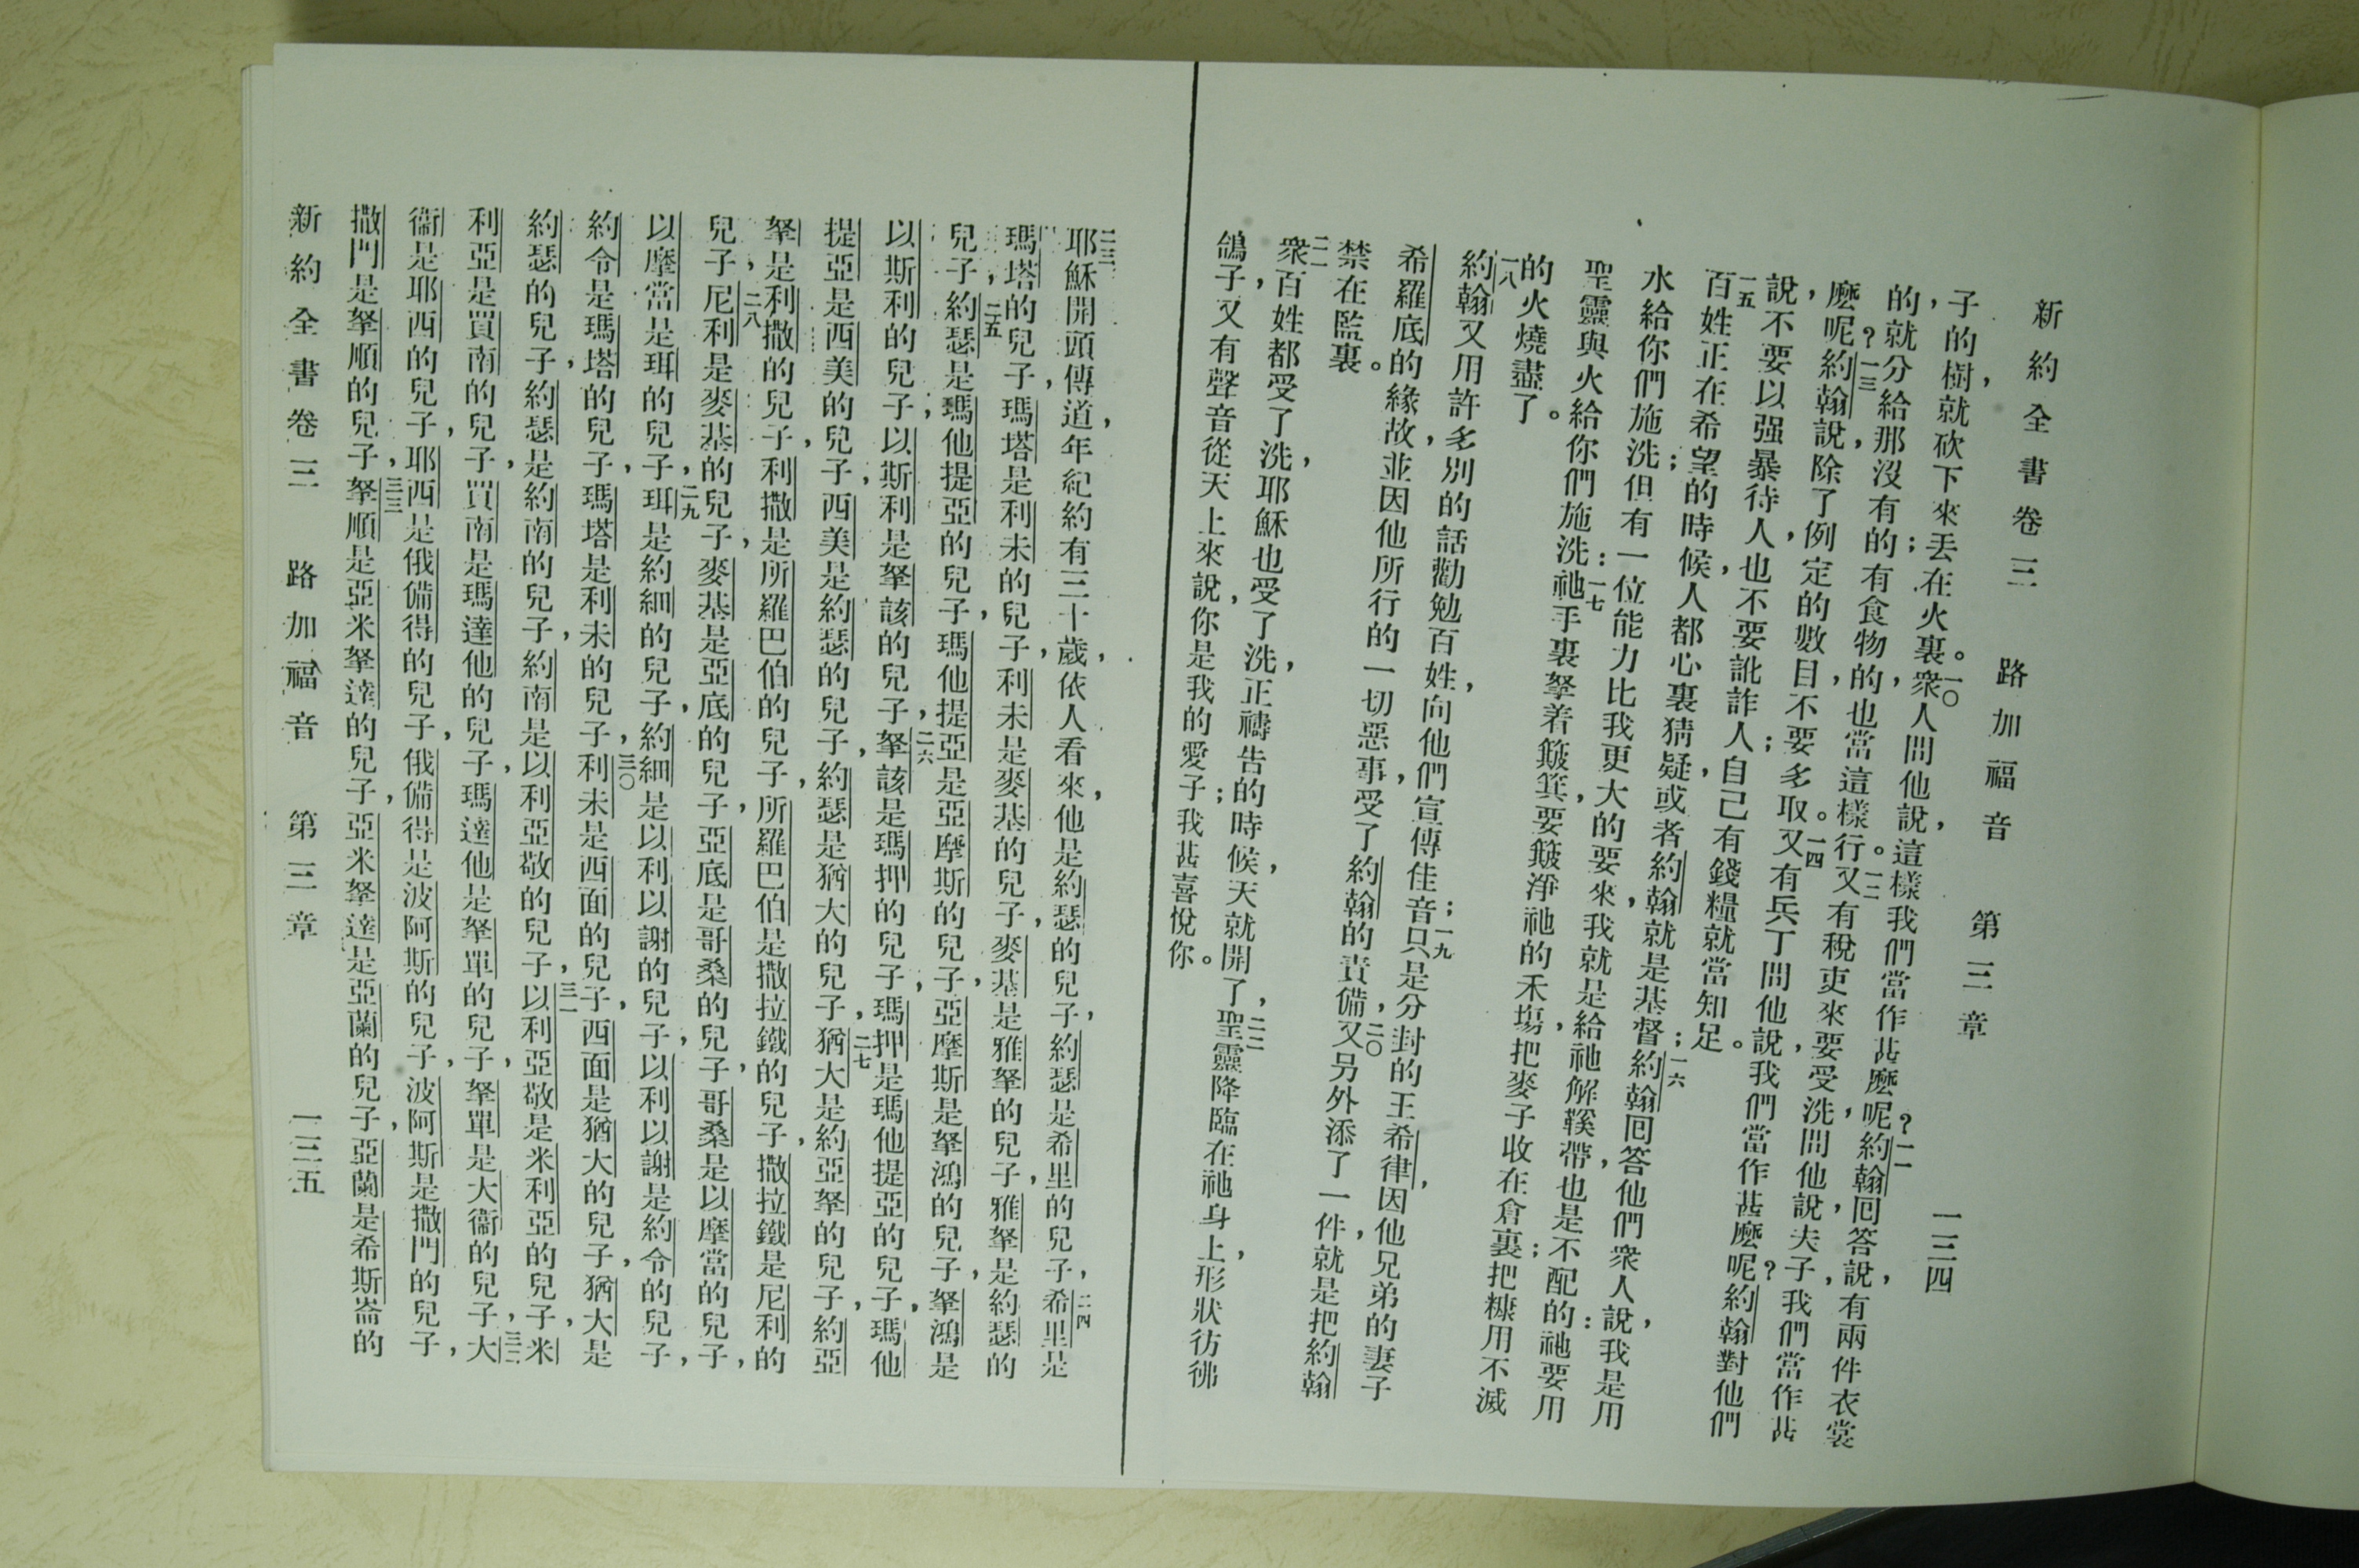 新約全書卷三 路加福音 第三章 一三四
子的樹，就砍下來丟在火裏。一〇衆人問他說，這樣我們當作甚麼呢？一一約翰回答說，有兩件衣裳
的，就分給那沒有的；有食物的，也當這樣行。一二又有稅吏來要受洗，問他說，夫子，我們當作甚
麼呢？一三約翰說，除了例定的數目，不要多取。一四又有兵丁問他說，我們當作甚麼呢？約翰對他們
說，不要以强暴待人，也不要訛詐人；自己有錢糧就當知足。
一五百姓正在希望的時候，人都心裏猜疑，或者約翰就是基督；一六約翰回答他們衆人說，我是用
水給你們施洗；但有一位能力比我更大的要來，我就是給祂解鞵帶，也是不配的：祂要用
聖靈與火給你們施洗：一七祂手裏拏着簸箕，要簸淨祂的禾塲，把麥子收在倉裏；把糠用不滅
的火燒盡了。
一八約翰又用許多別的話勸勉百姓，向他們宣傳佳音；一九只是分封的王希律，因他兄弟的妻子
希羅底的緣故，並因他所行的一切惡事，受了約翰的責備，二〇又另外添了一件，就是把約翰
禁在監裏。
二一衆百姓都受了洗，耶穌也受了洗，正禱告的時候，天就開了，二二聖靈降臨在祂身上，形狀彷彿
鴿子，又有聲音從天上來說，你是我的愛子；我甚喜悅你。
二三耶穌開頭傳道，年紀約有三十歲，依人看來，他是約瑟的兒子，約瑟是希里的兒子，二四希里是
瑪塔的兒子，瑪塔是利未的兒子，利未是麥基的兒子，麥基是雅拏的兒子，雅拏是約瑟的
兒子，二五約瑟是瑪他提亞的兒子，瑪他提亞是亞摩斯的兒子，亞摩斯是拏鴻的兒子，拏鴻是
以斯利的兒子，以斯利是拏該的兒子，二六拏該是瑪押的兒子，瑪押是瑪他提亞的兒子，瑪他
提亞是西美的兒子，西美是約瑟的兒子，約瑟是猶大的兒子，二七猶大是約亞拏的兒子，約亞
拏是利撒的兒子，利撒是所羅巴伯的兒子，所羅巴伯是撒拉鐵的兒子，撒拉鐵是尼利的
兒子，二八尼利是麥基的兒子，麥基是亞底的兒子，亞底是哥桑的兒子，哥桑是以摩當的兒子，
以摩當是珥的兒子，二九珥是約細的兒子，約細是以利以謝的兒子，以利以謝是約令的兒子，
約令是瑪塔的兒子，瑪塔是利未的兒子，三〇利未是西面的兒子，西面是猶大的兒子，猶大是
約瑟的兒子，約瑟是約南的兒子，約南是以利亞敬的兒子，三一以利亞敬是米利亞的兒子，米
利亞是買南的兒子，買南是瑪達他的兒子，瑪達他是拏單的兒子，拏單是大衞的兒子，三二大
衞是耶西的兒子，耶西是俄備得的兒子，俄備得是波阿斯的兒子，波阿斯是撒門的兒子，
撒門是拏順的兒子，三三拏順是亞米拏達的兒子，亞米拏達是亞蘭的兒子，亞蘭是希斯崙的
新約全書卷三 路加福音 第三章 一三五